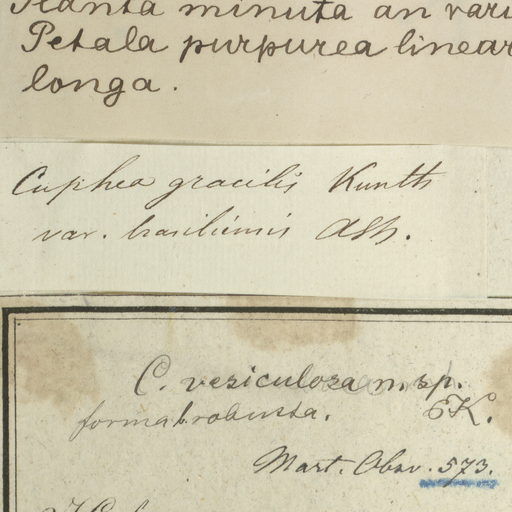 Planta minuta an vari
Petala purpurea linear
longa.
Cuphea gracilis Kunth
var. brasiliensis
C. vesiculosa n. sp.
forma robusta. EK.
Mart. Obsv. 573.